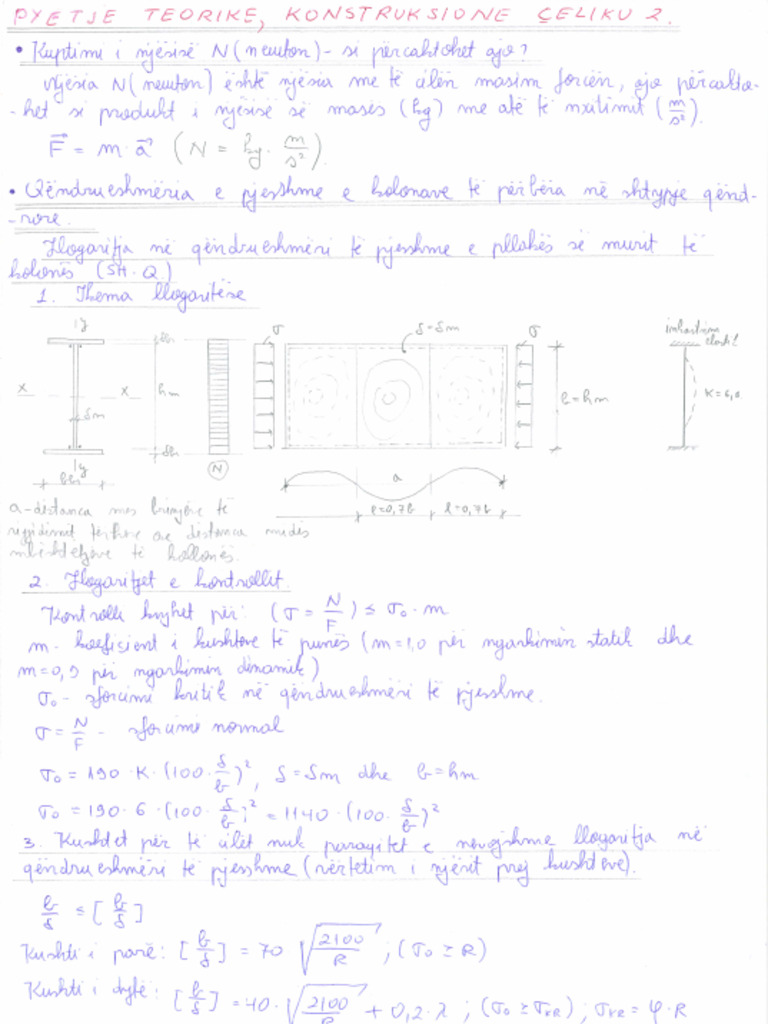 PYETJE TEORIKE, KONSTRUKSIONE ÇELIKU 2.
• Kuptimi i njësisë N (newton) - si përcaktohet ajo?
Njësia N (newton) është njësia me të cilën masim forcën, ajo përcakto-
-het si produkt i njësisë së masës (kg) me atë të nxitimit (m/s²).
F = m · a (N = kg · m/s²).
• Qëndrueshmëria e pjesshme e kolonave të përbëra në shtypje qënd-
-rore.
Llogaritja në qëndrueshmëri të pjesshme e pllakës së murit të
kolonës (SH.Q)
1. Skema llogaritëse
y
δb
σ
δ=δm
σ
x
x
hm
δm
b=hm
K=6,0
δb
y
bb
N
a
l=0,7b
l=0,7b
a-distanca mes brinjëve të
ngurtësimit tërthore ose distanca midis
mbështetjeve të kollonës.
2. Llogaritjet e kontrollit.
Kontrolli bëhet për: (σ = N/F) ≤ σ₀ · m
m - koeficient i kushteve të punës (m=1,0 për ngarkimin statik dhe
m=0,9 për ngarkimin dinamik)
σ₀ - sforcimi kritik në qëndrueshmëri të pjesshme.
σ = N/F - sforcimi normal
σ₀ = 190 · K · (100 · δ/b)², δ=δm dhe b=hm
σ₀ = 190 · 6 · (100 · δ/b)² = 1140 · (100 · δ/b)²
3. Kushtet për të cilët nuk paraqitet e nevojshme llogaritja në
qëndrueshmëri të pjesshme (vërtetim i njërit prej kushteve).
b/δ ≤ [b/δ]
Kushti i parë: [b/δ] = 70 √(2100/R) ; (σ₀ ≥ R)
Kushti i dytë: [b/δ] = 40 · √(2100/R) + 0,2 · λ ; (σ₀ ≥ σkr) ; σkr = φ · R